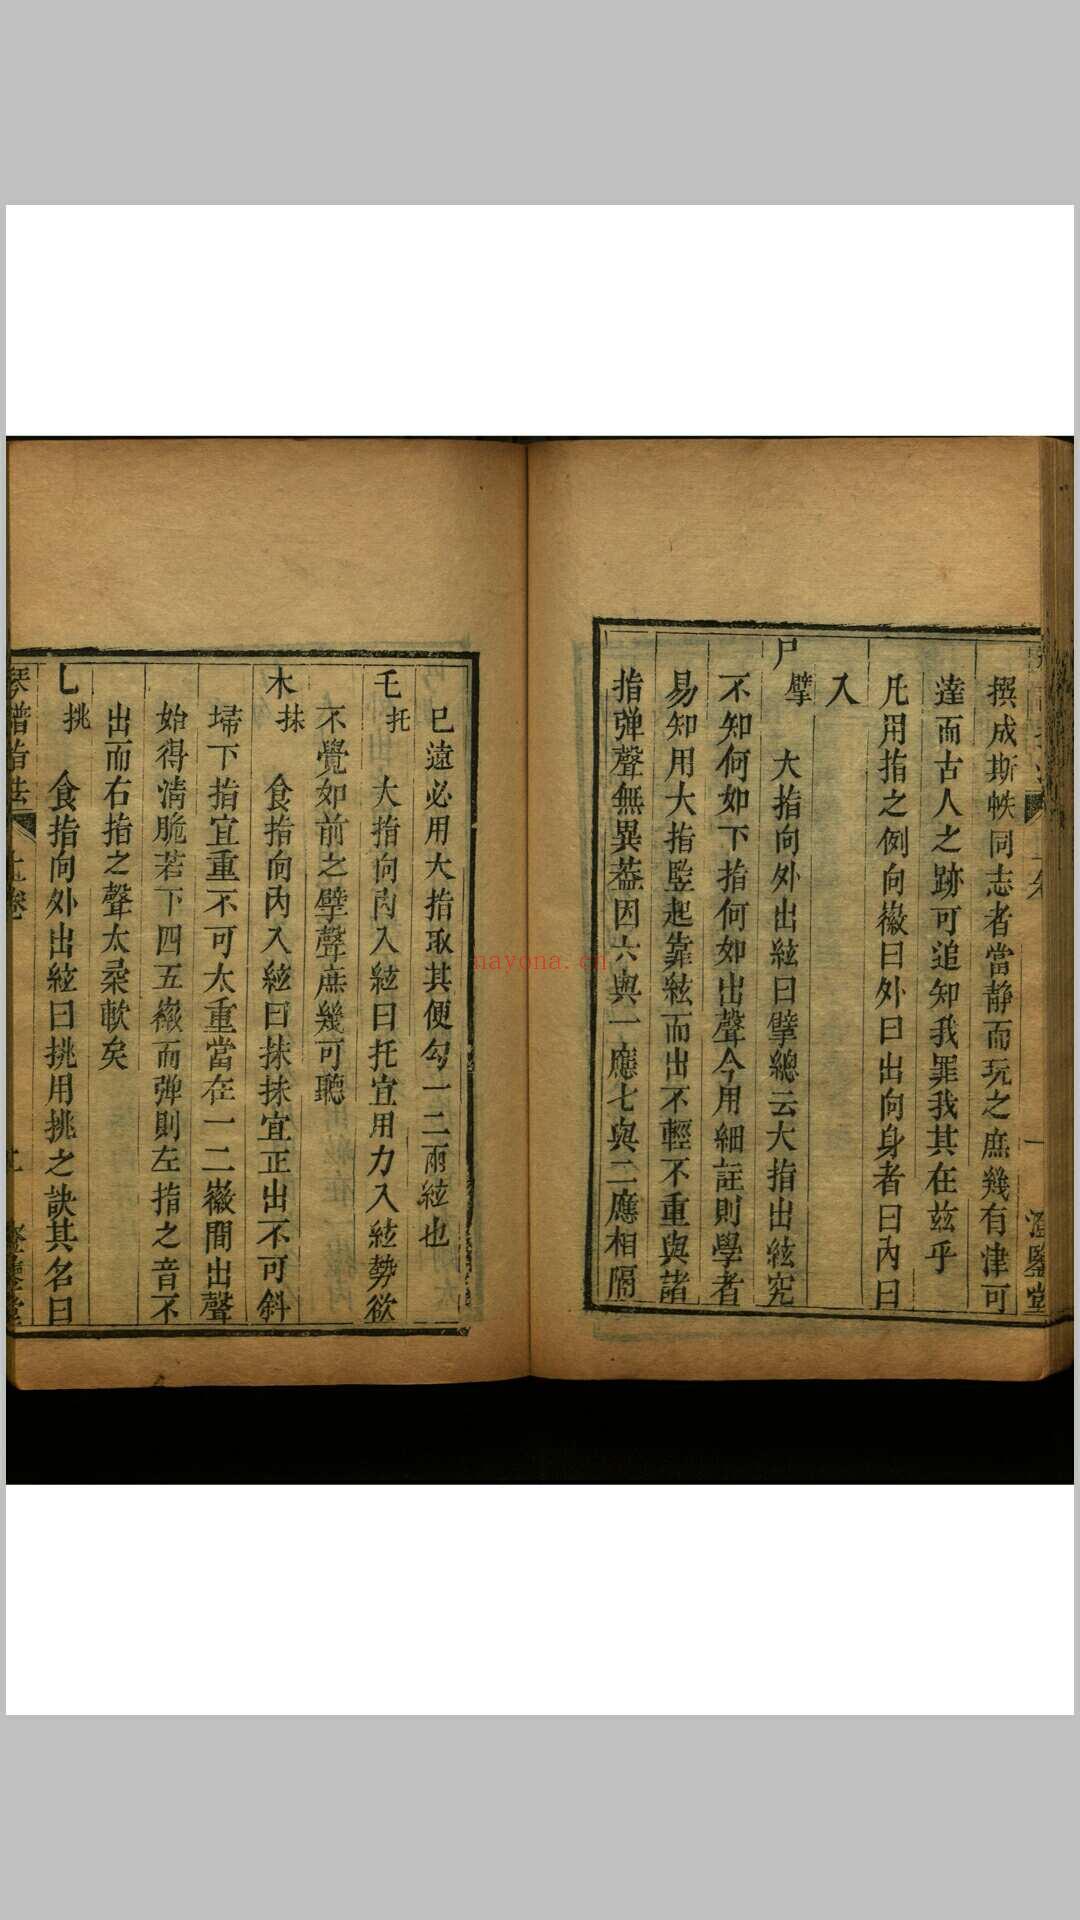 撰成斯帙同志者當静而玩之庶幾有津可
達而古人之跡可追知我罪我其在兹乎
凡用指之例向徽曰外曰出向身者曰內曰
入
尸 擘 大指向外出絃曰擘總云大指出絃究
不知何如下指何如出聲今用細註則學者
易知用大指竪起靠絃而出不輕不重與諸
指弹聲無異葢因六與一應七與二應相隔
已遠必用大指取其便勾一二兩絃也
乇 托 大指向內入絃曰托宜用力入絃勢欲
不覺如前之擘聲庶幾可聽
木 抹 食指向內入絃曰抹抹宜正出不可斜
埽下指宜重不可太重當在一二徽間出聲
始得清脆若下四五徽而弹則左指之音不
出而右指之聲太桑軟矣
乚 挑 食指向外出絃曰挑用挑之訣其名曰
琴譜指法 上卷 澄鑒堂
一 澄鑒堂
nayona.cn